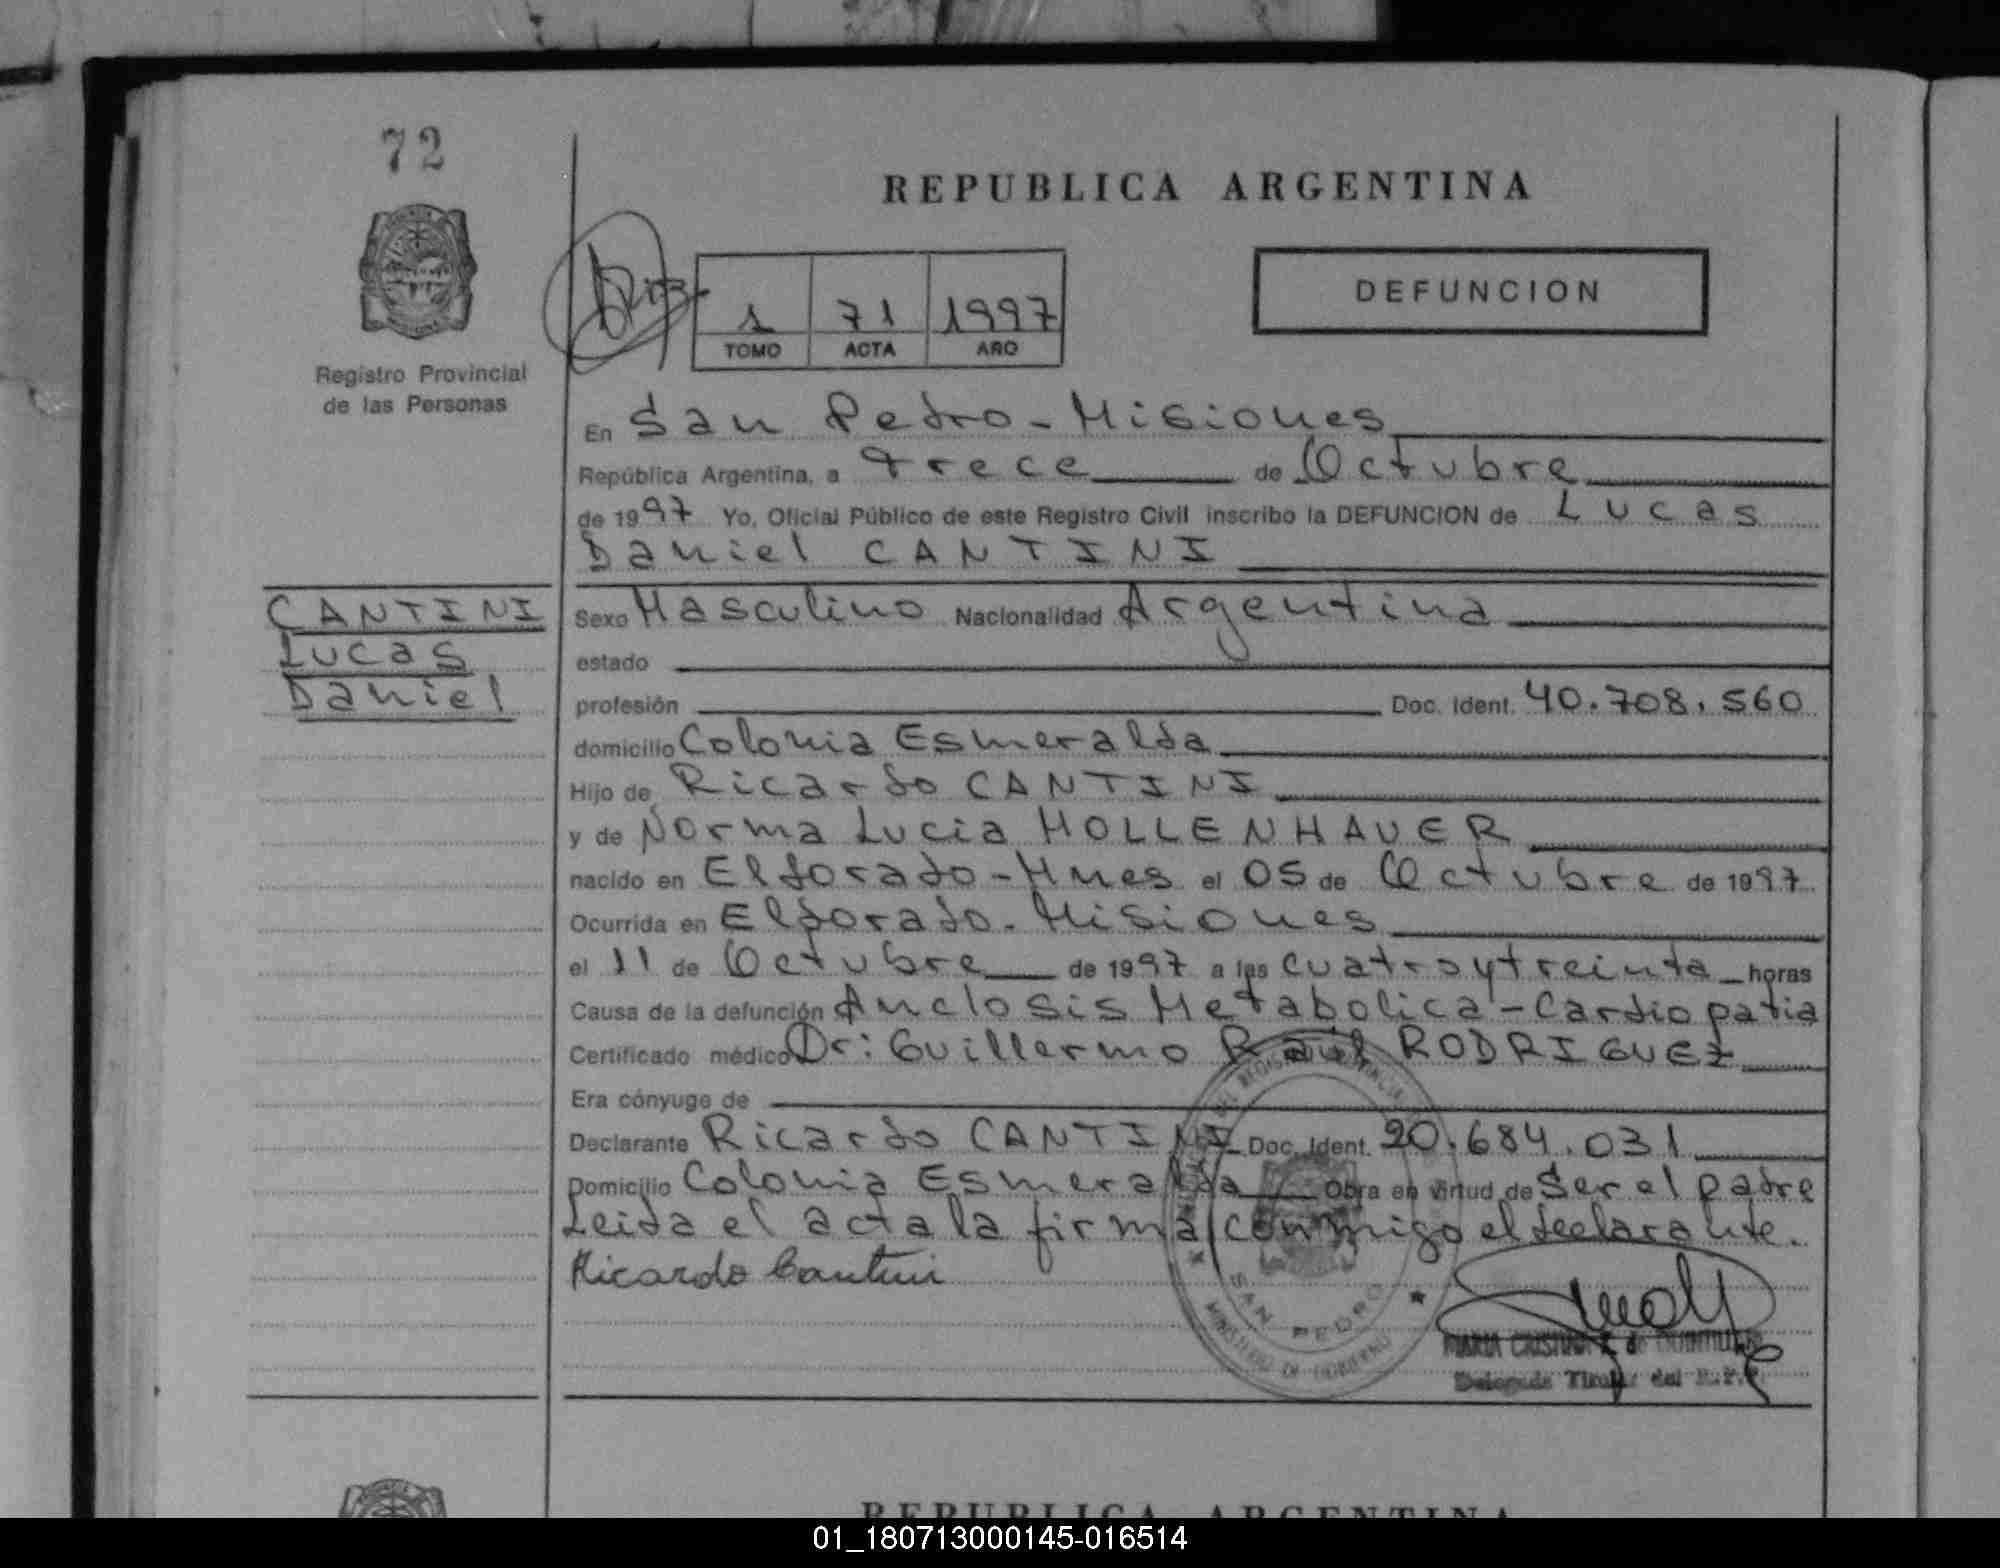 72
REPUBLICA ARGENTINA
DEFUNCION
1 71 1997
TOMO ACTA AÑO
Registro Provincial
de las Personas
En San Pedro - Misiones
República Argentina, a trece de Octubre
de 1997 Yo, Oficial Público de este Registro Civil inscribo la DEFUNCION de Lucas
Daniel CANTINI
CANTINI
Lucas
Daniel
Sexo Masculino Nacionalidad Argentina
estado
profesión Doc. Ident. 40.708.560
domicilio Colonia Esmeralda
Hijo de Ricardo CANTINI
y de Norma Lucia HOLLENHAUER
nacido en Eldorado - Mnes el 05 de Octubre de 1997
Ocurrida en Eldorado - Misiones
el 11 de Octubre de 1997 a las cuatro y treinta horas
Causa de la defunción Anclosis Metabolica - Cardiopatia
Certificado médico Dr: Guillermo Raúl RODRIGUEZ
Era cónyuge de
Declarante Ricardo CANTINI Doc. Ident. 20.684.031
Domicilio Colonia Esmeralda Obra en virtud de Ser el padre
Leida el acta la firma conmigo el declarante.
Ricardo Cantini
SAN PEDRO
MINISTERIO DE GOBIERNO
MARIA CRISTINA de
Delegada Titular del R.P.P.
REPUBLICA ARGENTINA
01_180713000145-016514